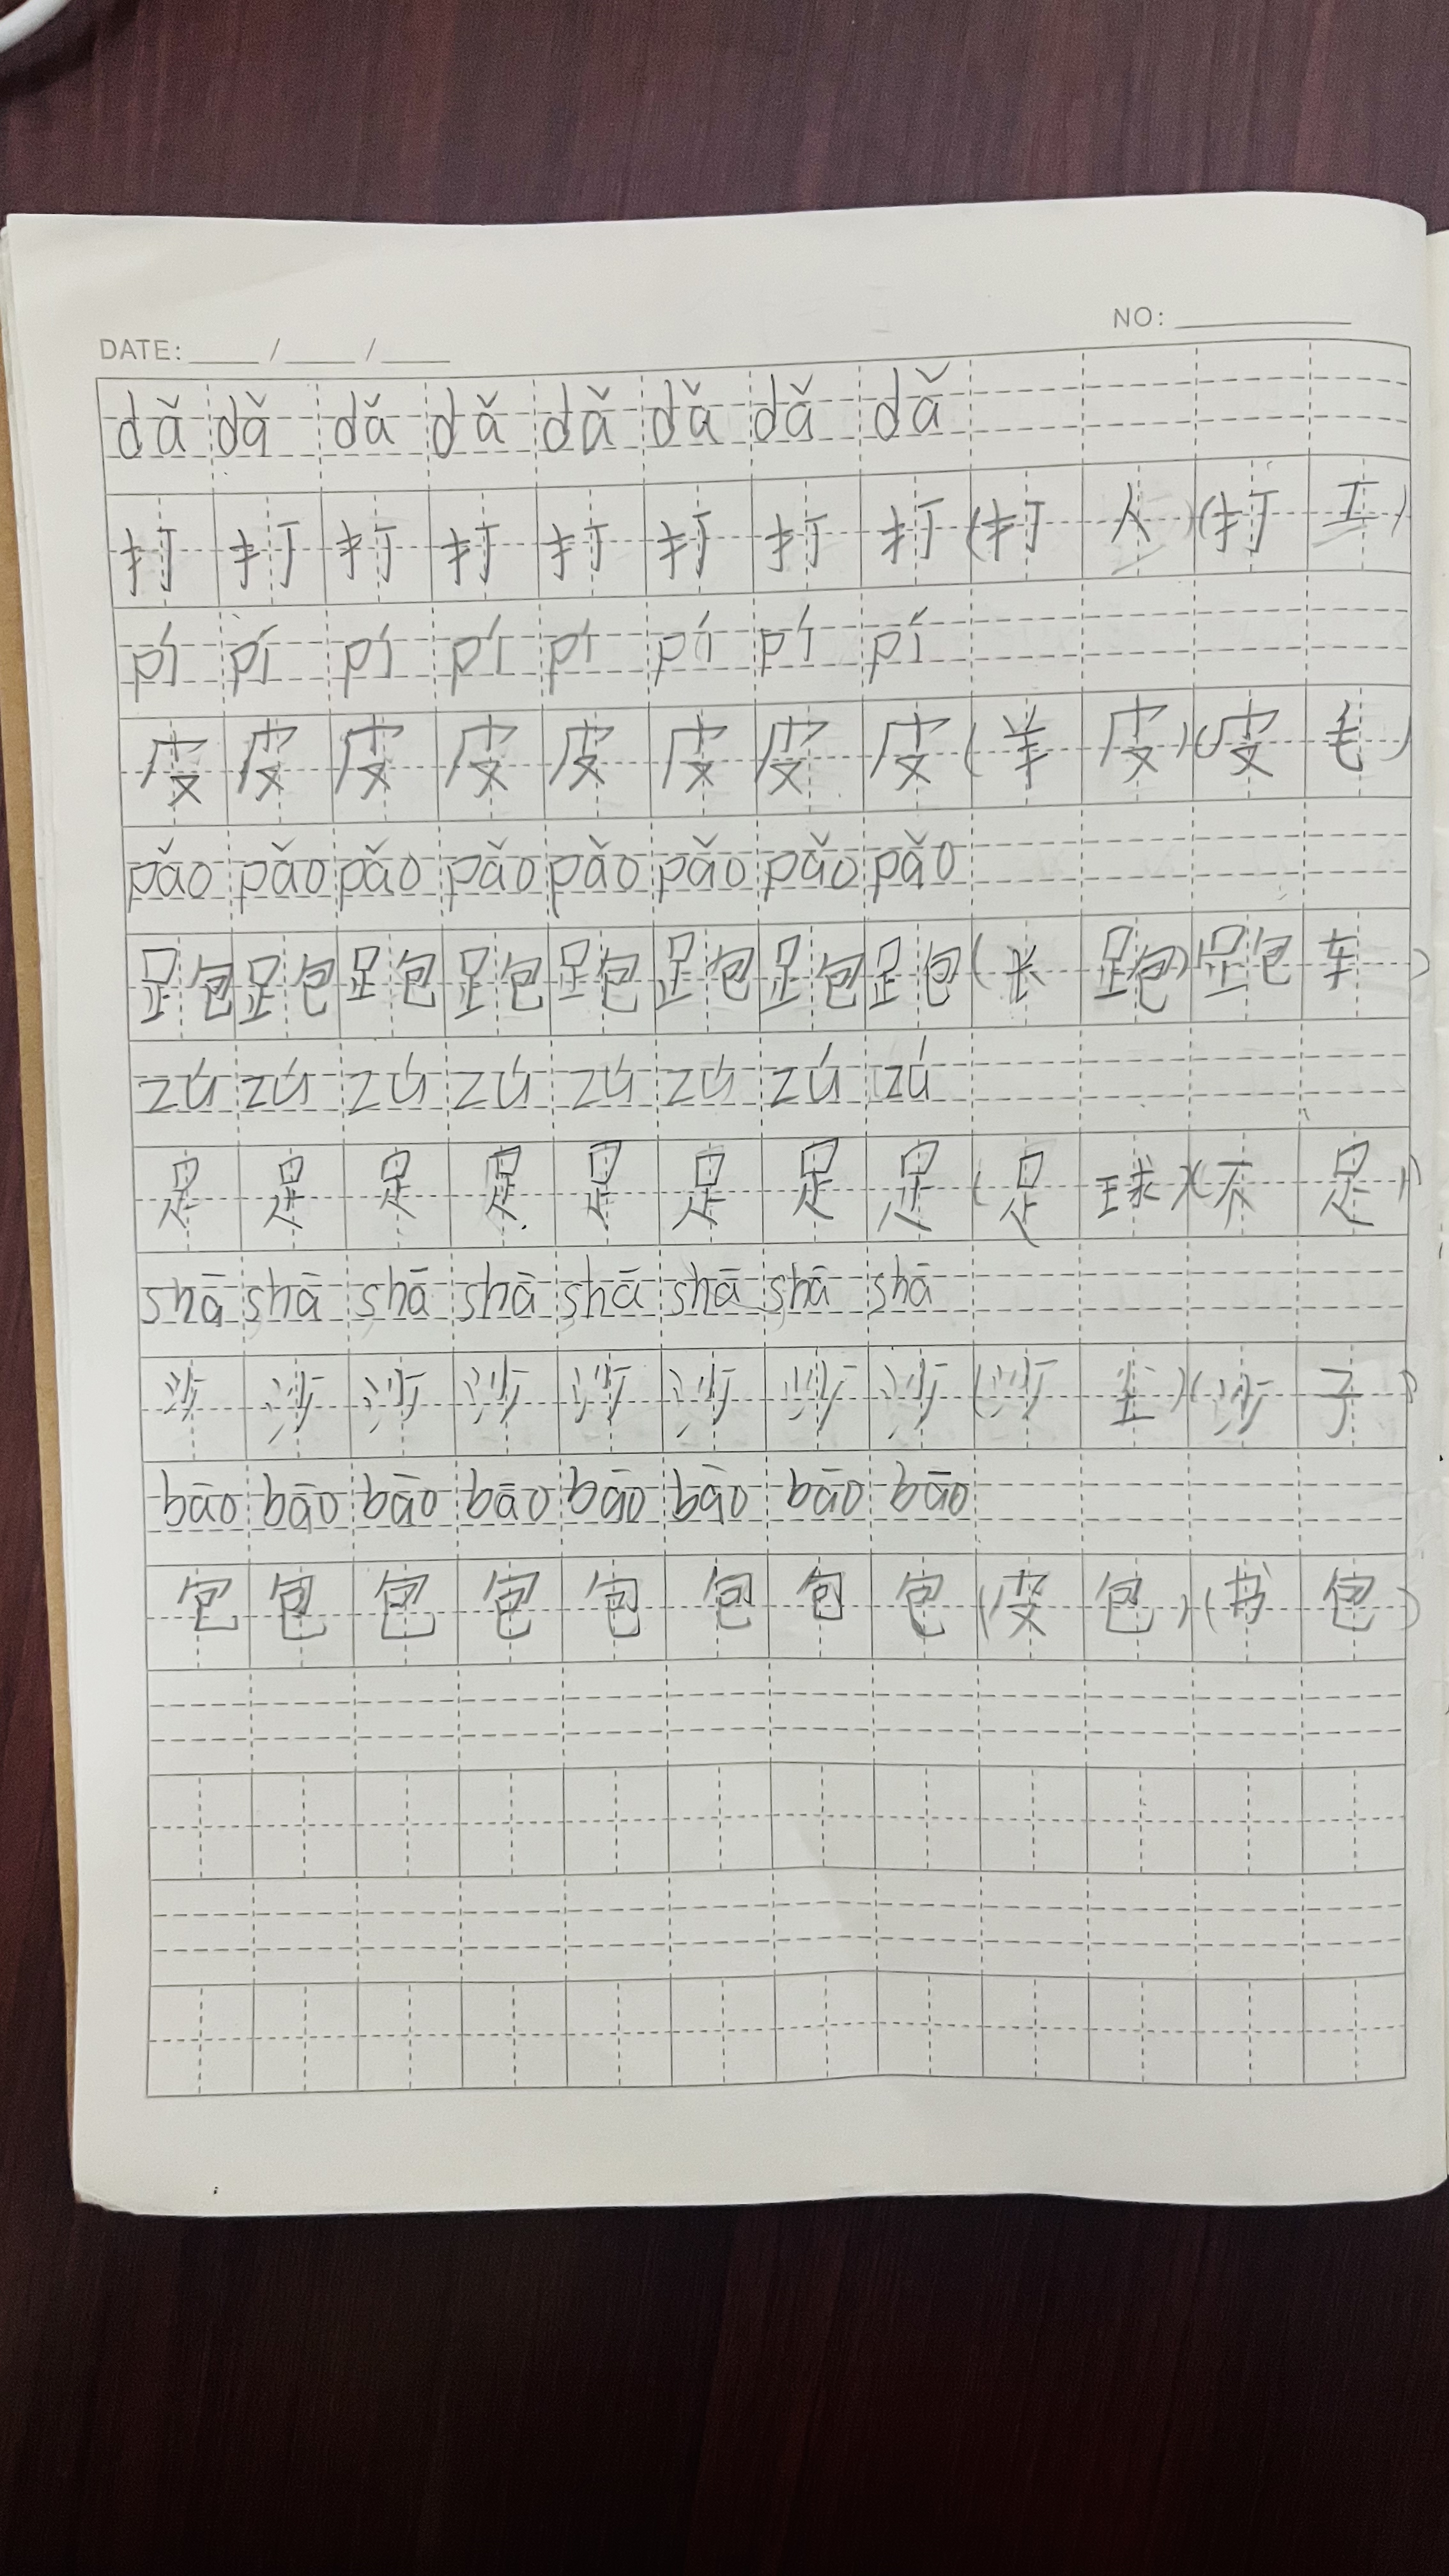 DATE: ____ / ____ / ____ NO: ________
dǎ dǎ dǎ dǎ dǎ dǎ dǎ dǎ
打 打 打 打 打 打 打 打 (打 人) (打 工)
pí pí pí pí pí pí pí pí
皮 皮 皮 皮 皮 皮 皮 皮 (羊 皮) (皮 毛)
pǎo pǎo pǎo pǎo pǎo pǎo pǎo pǎo
跑 跑 跑 跑 跑 跑 跑 跑 (长 跑) 跑 车 )
zú zú zú zú zú zú zú zú
足 足 足 足 足 足 足 足 (足 球) (不 足)
shā shā shā shā shā shā shā shā
沙 沙 沙 沙 沙 沙 沙 沙 (沙 尘) (沙 子)
bāo bāo bāo bāo bāo bāo bāo bāo
包 包 包 包 包 包 包 包 (皮 包) (书 包)